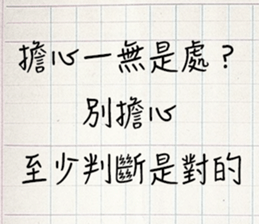 擔心一無是處？
別擔心
至少判斷是對的